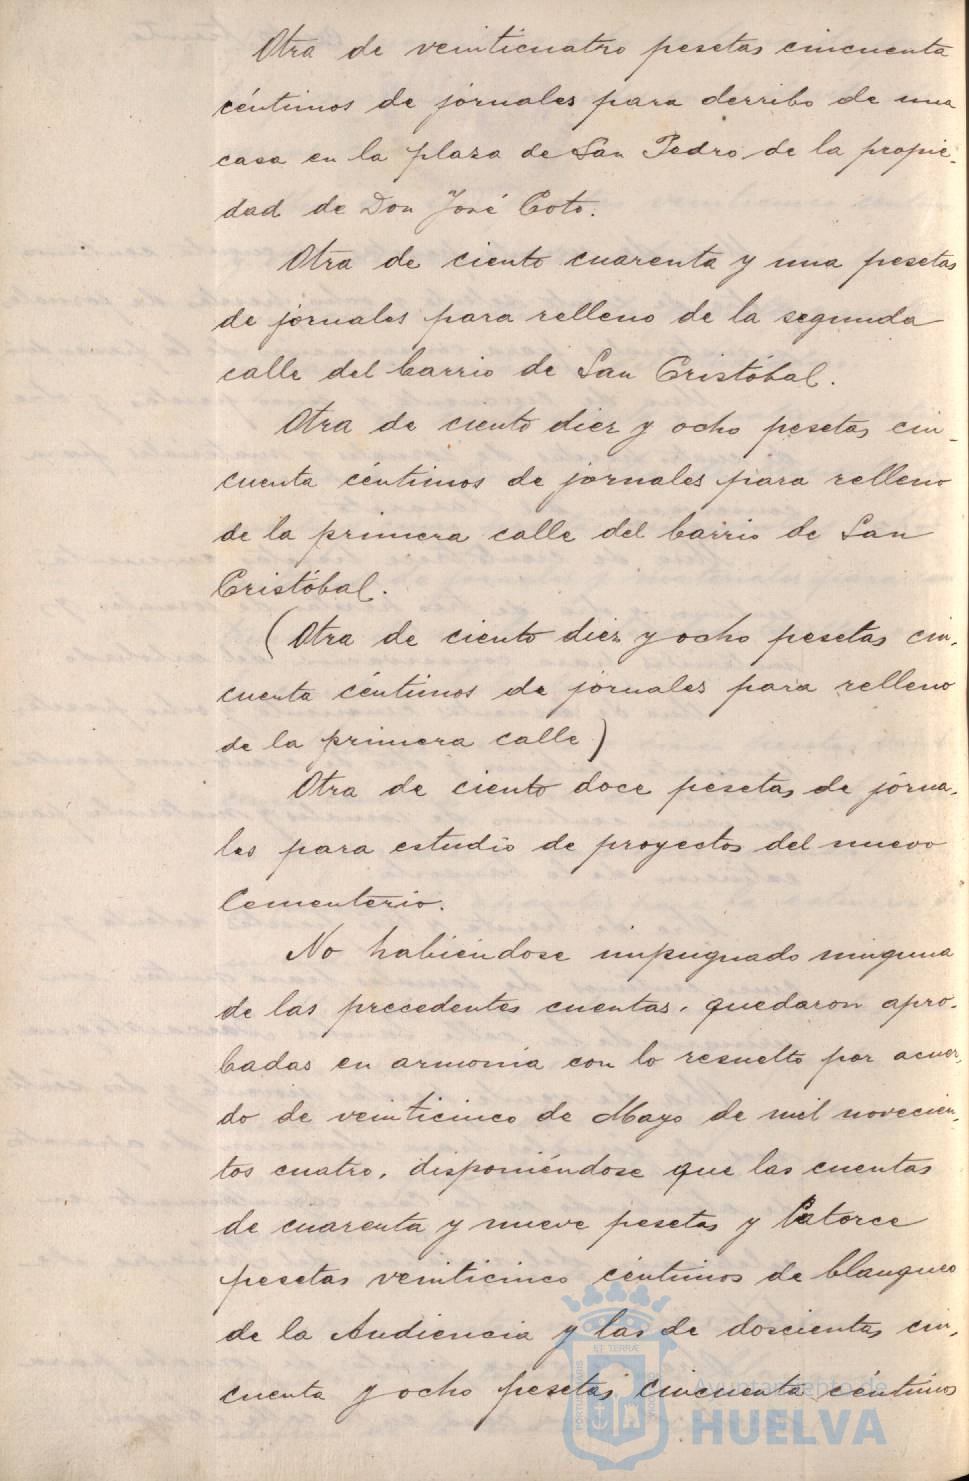 Otra de veinticuatro pesetas cincuenta
céntimos de jornales para derribo de una
casa en la plaza de San Pedro de la propie-
dad de Don José Coto.
Otra de ciento cuarenta y una pesetas
de jornales para relleno de la segunda
calle del barrio de San Cristóbal.
Otra de ciento diez y ocho pesetas cin-
cuenta céntimos de jornales para relleno
de la primera calle del barrio de San
Cristóbal.
(Otra de ciento diez y ocho pesetas cin-
cuenta céntimos de jornales para relleno
de la primera calle)
Otra de ciento doce pesetas de jorna-
les para estudio de proyectos del nuevo
Cementerio.
No habiéndose impugnado ninguna
de las precedentes cuentas, quedaron apro-
badas en armonía con lo resuelto por acuer-
do de veinticinco de Mayo de mil novecien-
tos cuatro, disponiéndose que las cuentas
de cuarenta y nueve pesetas y Catorce
pesetas veinticinco céntimos de blanqueo
de la Audiencia y las de doscientas cin-
cuenta y ocho pesetas cincuenta céntimos
PORTUS MARIS ET TERRÆ CUSTODIA
Ayuntamiento de
HUELVA